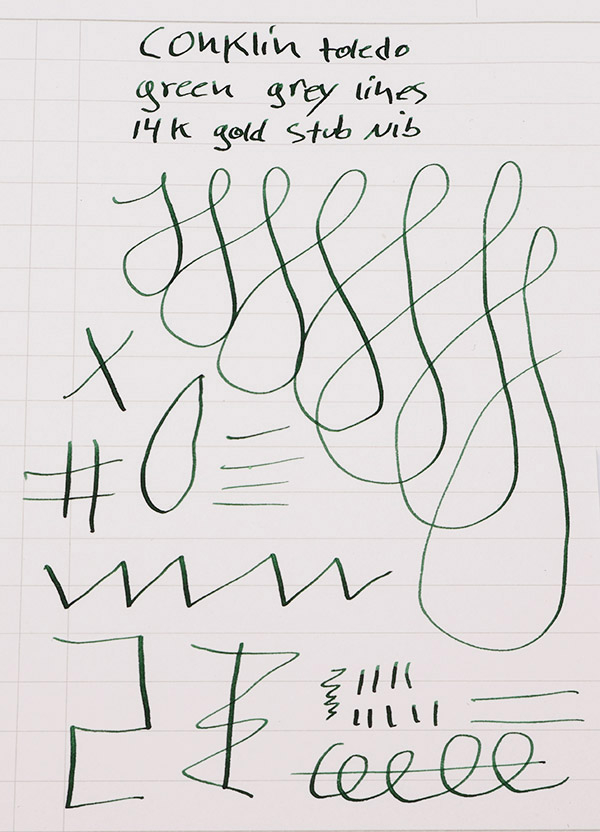 Conklin toledo
green grey lines
14K gold stub nib